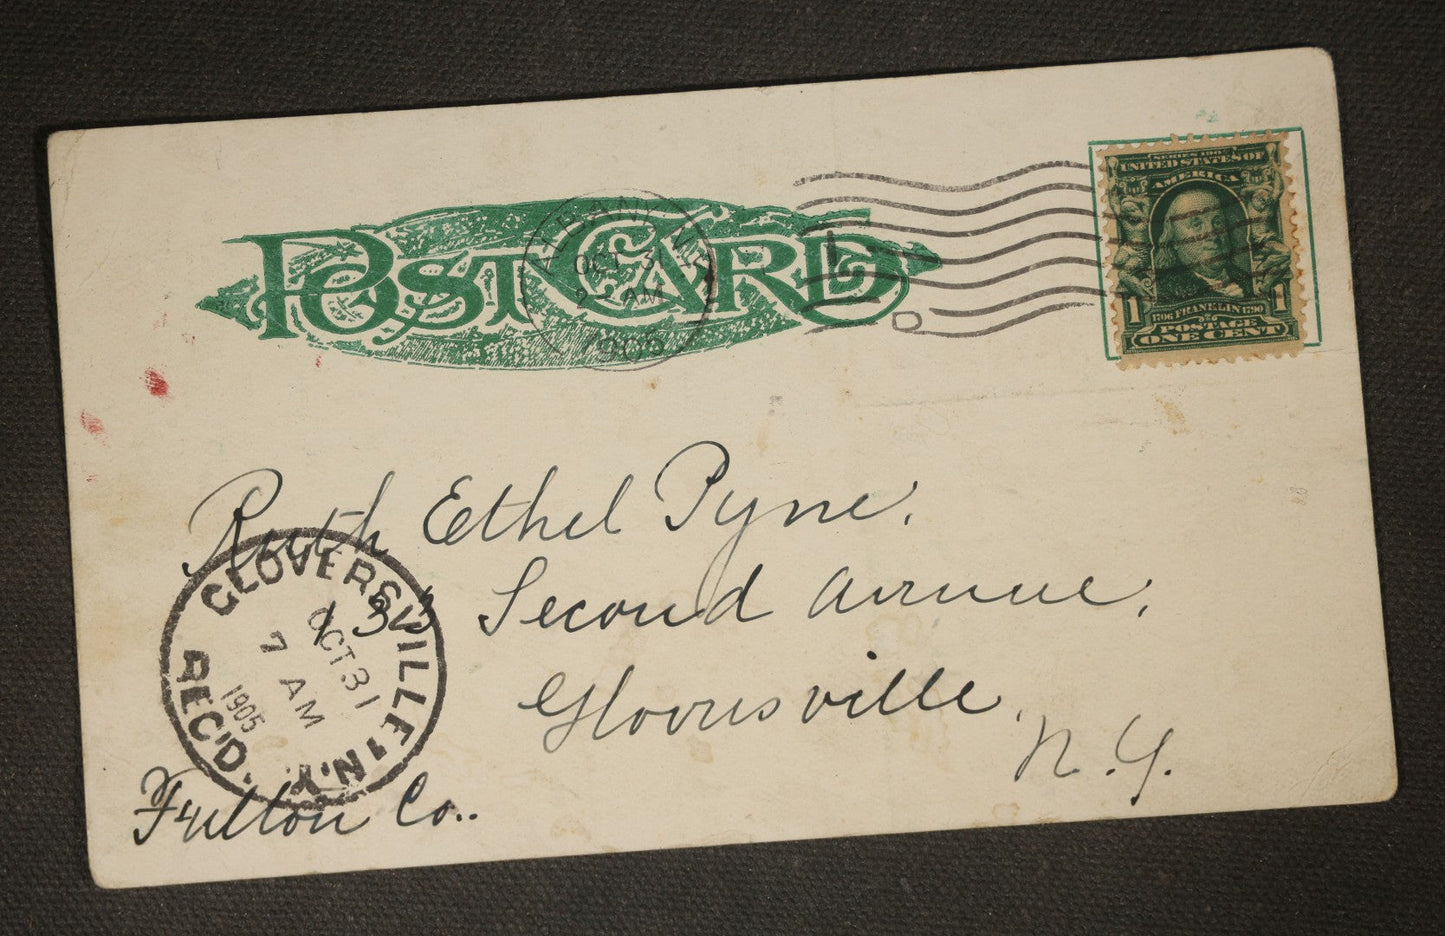 POST CARD
ALBANY, N.Y.
OCT 31
2- AM
1905
L
D
SERIES 1902
UNITED STATES OF
AMERICA
1706 FRANKLIN 1790
1 1
POSTAGE
ONE CENT
Ruth Ethel Pyne.
133 Second Avenue,
Gloversville,
N.Y.
Fulton Co..
GLOVERSVILLE, N.Y.
OCT 31
7 AM
1905
REC'D.